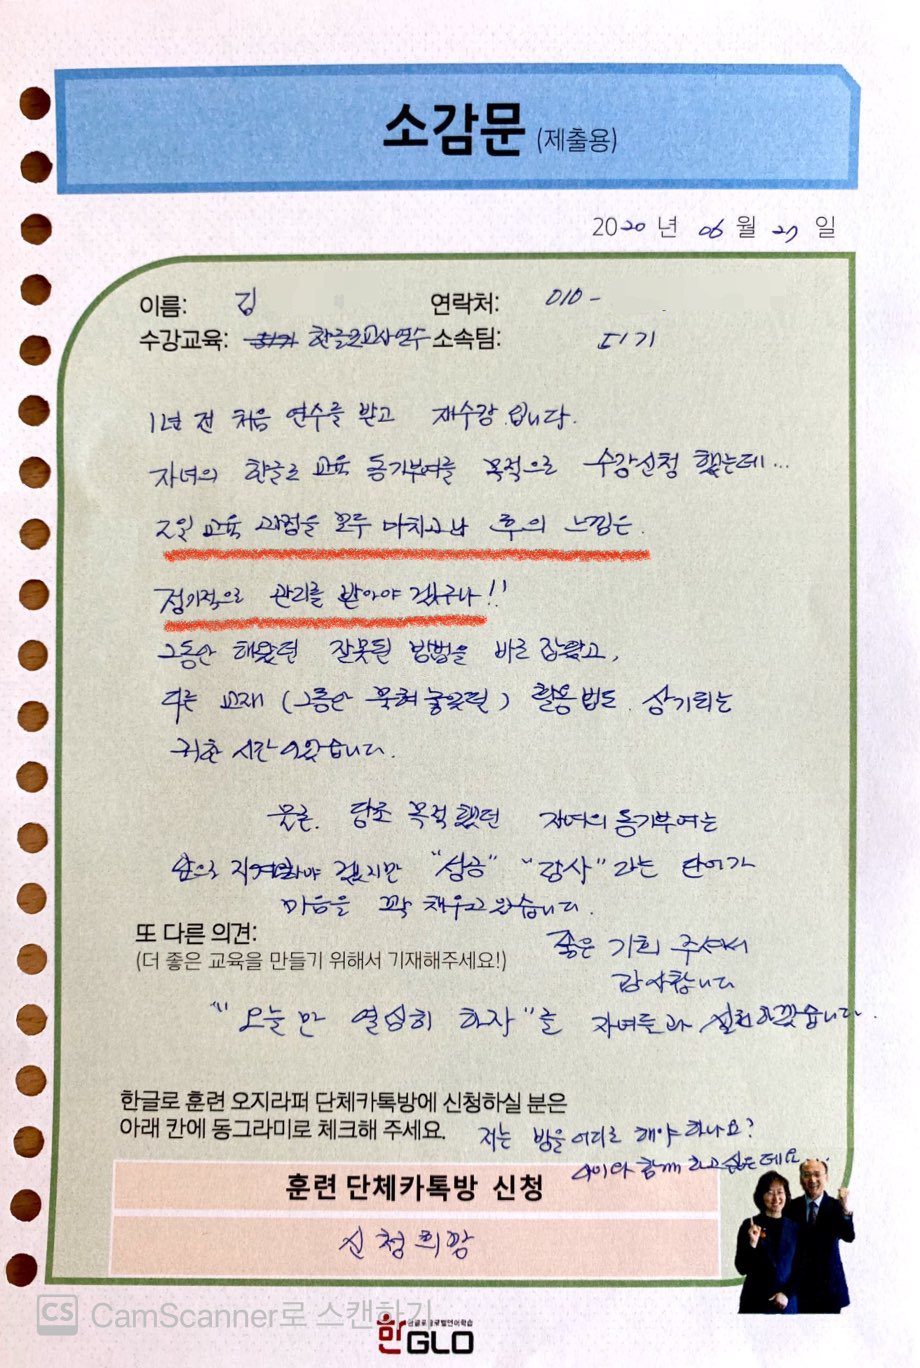 소감문 (제출용)
2020년 06월 27일
이름: 김 연락처: 010-
수강교육: 한글로교사연수 소속팀:
1년 전 처음 연수를 받고 재수강 입니다.
자녀의 한글로 교육 동기부여를 목적으로 수강신청 했는데...
2일 교육 과정을 모두 마치고난 후의 느낌은.
정기적으로 관리를 받아야 겠구나!!
그동안 해왔던 잘못된 방법을 바로 잡았고,
다른 교재 (그동안 묵혀놓았던) 활용법도 상기되는
귀한 시간이었습니다.
물론. 당초 목적했던 자녀의 동기부여는
앞으로 지켜봐야 겠지만 "성공" "감사"라는 단어가
마음을 꽉 채우고 있습니다.
또 다른 의견:
(더 좋은 교육을 만들기 위해서 기재해주세요!)
좋은 기회 주셔서
감사합니다
"오늘만 열심히 하자"를 자녀들과 실천하겠습니다.
한글로 훈련 오지라퍼 단체카톡방에 신청하실 분은
아래 칸에 동그라미로 체크해 주세요.
저는 방을 어디로 해야 하나요?
아이와 함께 하고싶은데요...
훈련 단체카톡방 신청
신청희망
CS CamScanner로 스캔하기
한GLO